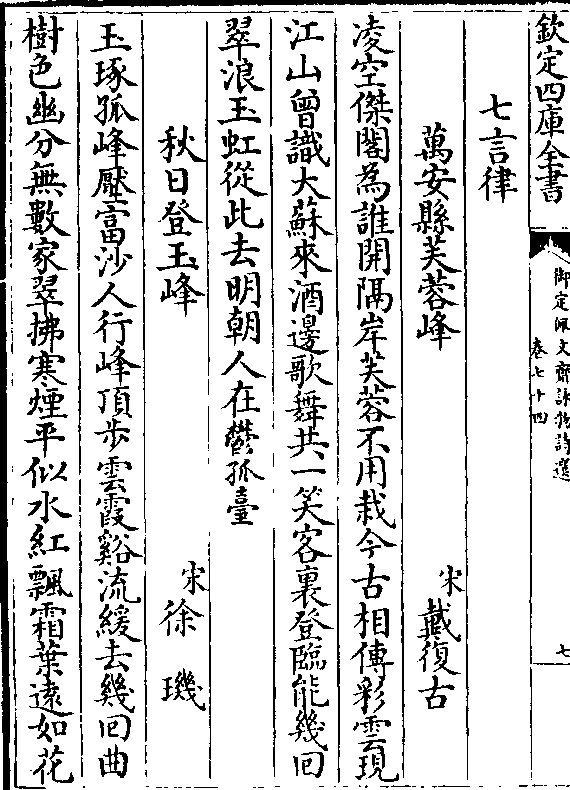 欽定四庫全書
御定佩文齋詠物詩選
卷七十四
七
七言律
萬安縣芙蓉峰
宋戴復古
凌空傑閣為誰開隔岸芙蓉不用栽今古相傳彩雲現
江山曾識大蘇來酒邊歌舞共一笑客裏登臨能幾回
翠浪玉虹從此去明朝人在鬱孤臺
秋日登玉峰
宋徐璣
玉琢孤峰壓富沙人行峰頂步雲霞谿流緩去幾回曲
樹色幽分無數家翠拂寒煙平似水紅飄霜葉遠如花